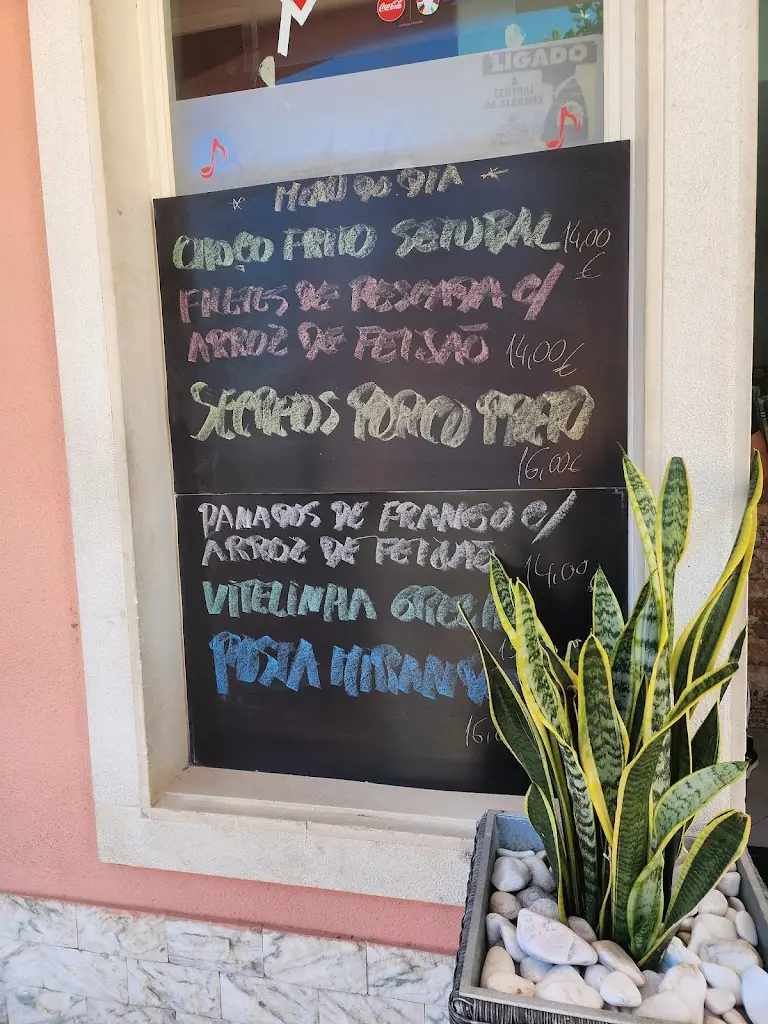 Coca-Cola
LIGADO
À
CENTRAL
DE ALARMES
MENU DO DIA
CHOCO FRITO SETUBAL 14,00
€
FILETES DE PESCADA C/
ARROZ DE FEIJÃO 14,00€
SECRETOS PORCO PRETO
16,00€
PANADOS DE FRANGO C/
ARROZ DE FEIJÃO 14,00
VITELINHA
POSTA
16,